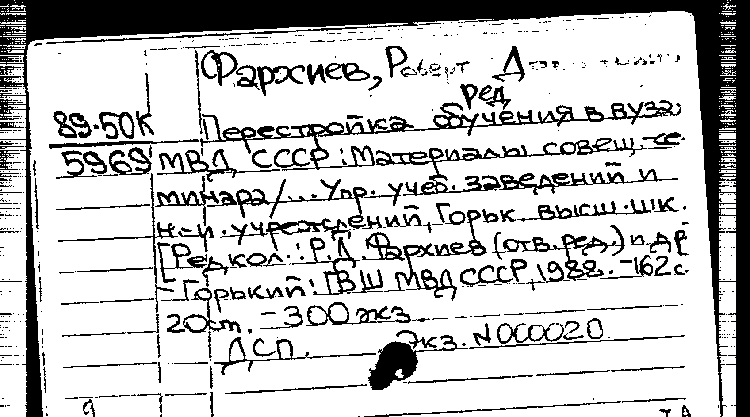 Фархиев, Роберт
ред
89-50К Перестройка обучения в вузах
5969 МВД СССР: Материалы совещ.-се-
минара/... Упр. учеб. заведений и
н.-и. учреждений, Горьк. высш. шк.
[Редкол.: Р.Д. Фархиев (отв. ред.) и др
- Горький: ГВШ МВД СССР, 1988. -162 с.
20 см. -300 экз.
ДСП. Экз. N 000020